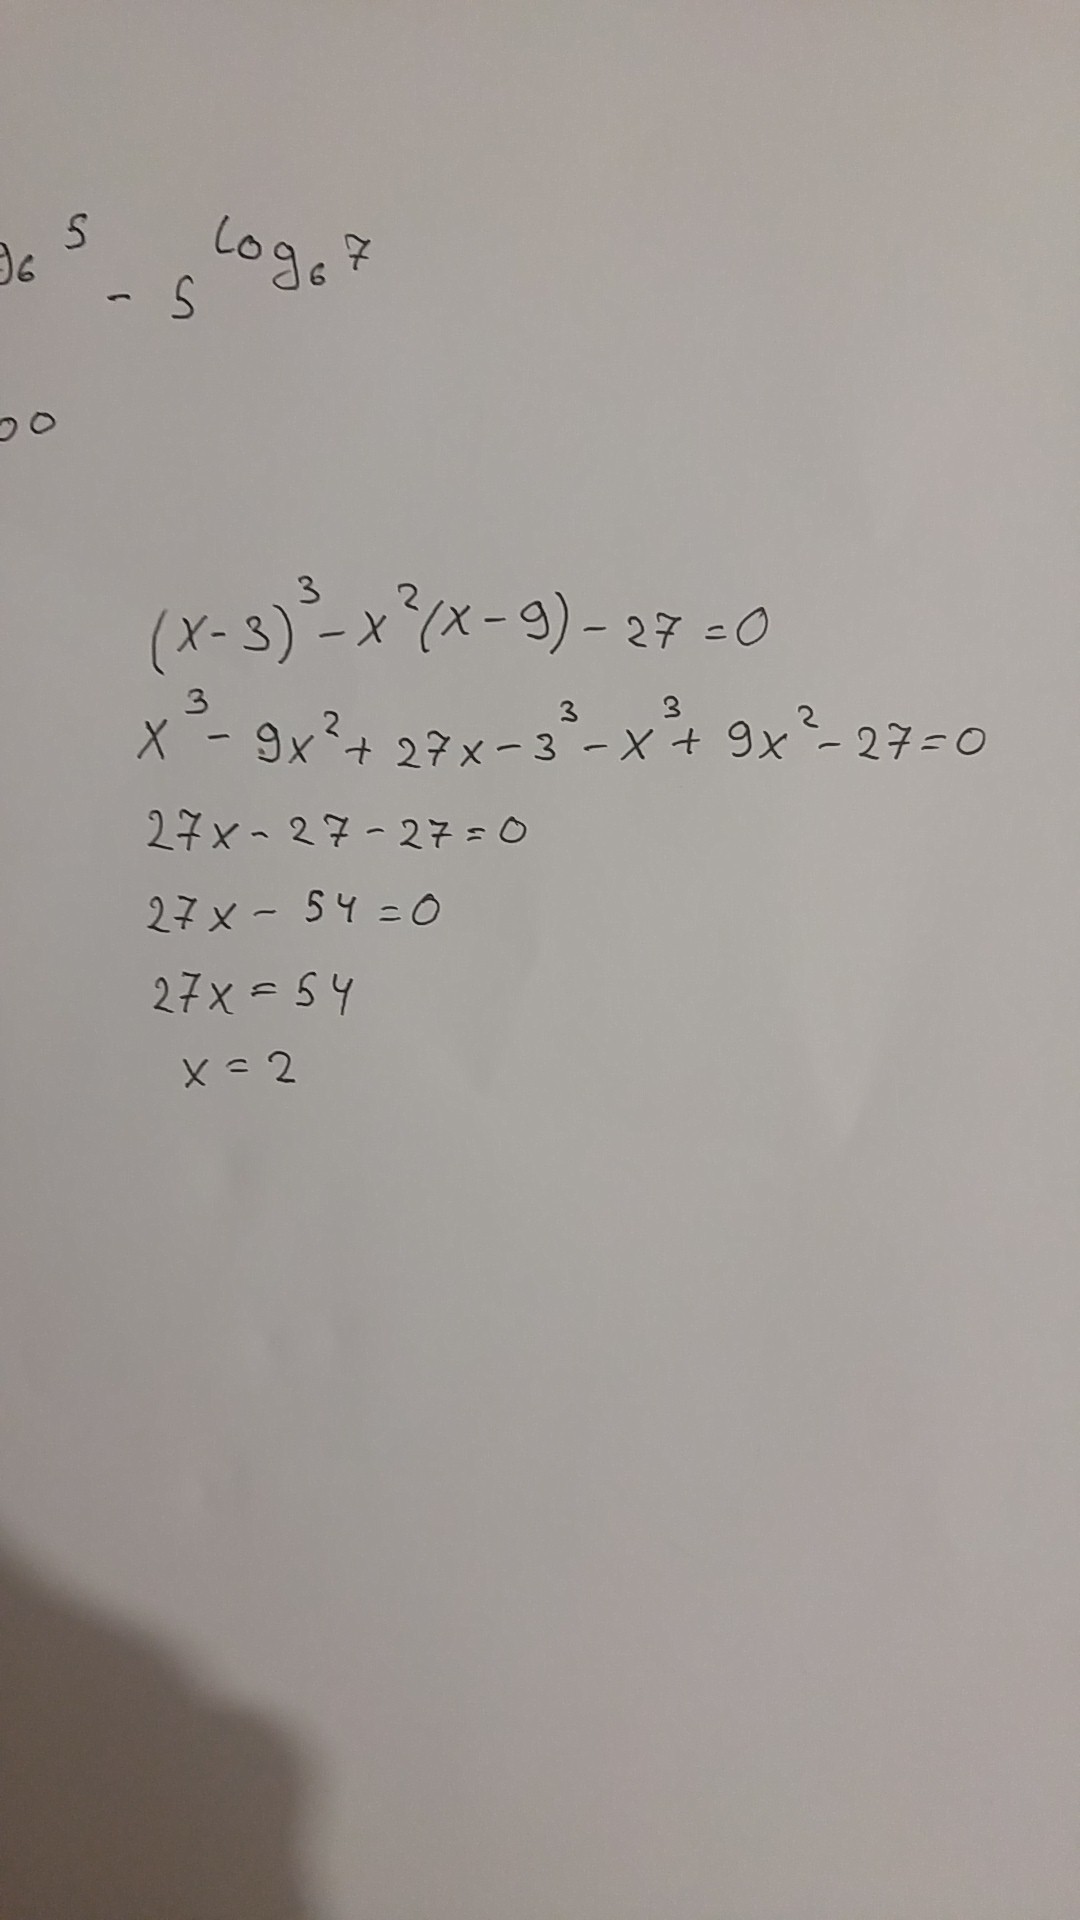 g₆ 5 - 5^log₆ 7
00
(x-3)³ - x²(x-9) - 27 = 0
x³ - 9x² + 27x - 3³ - x³ + 9x² - 27 = 0
27x - 27 - 27 = 0
27x - 54 = 0
27x = 54
x = 2